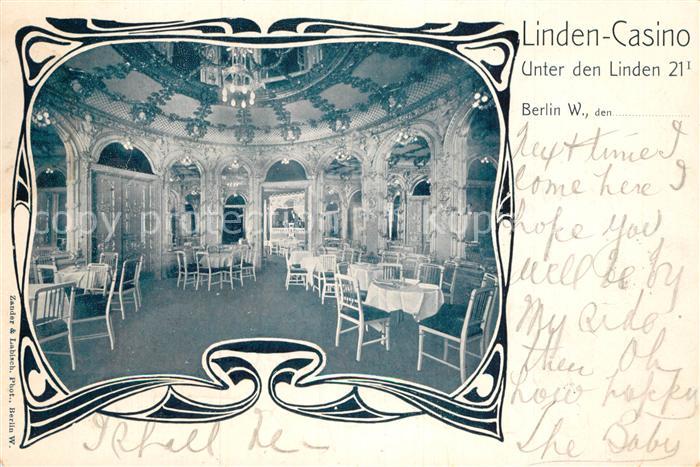 Linden-Casino
Unter den Linden 21I
Berlin W., den
Next time I
Come here I
hope you
will be by
My side
then Oh
how happy
I shall be -
The Baby
Zander & Labisch, Phot., Berlin W.
copy protection watermark